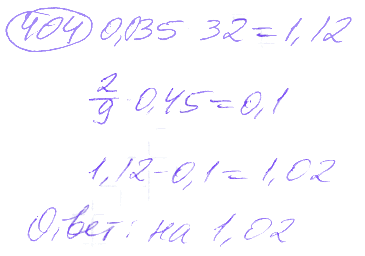 404 0,035 32 = 1,12
2/9 · 0,45 = 0,1
1,12 - 0,1 = 1,02
Ответ: на 1,02